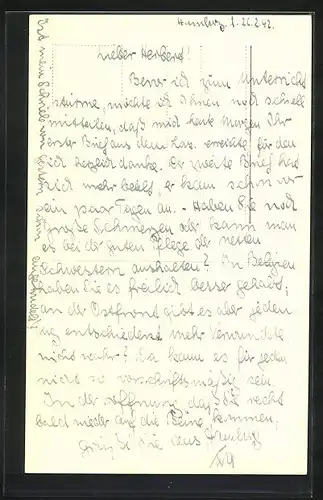 Hamburg, 1.-26.2.42.
Lieber Herbert!
Bevor ich zum Unterricht
stürme, möchte ich Ihnen noch schnell
mitteilen, daß mich heute Morgen Ihr
erster Brief aus dem Laz. erreichte für den
ich herzlich danke. Der zweite Brief hat
sich mehr beeilt, er kam schon vor
ein paar Tagen an. - Haben Sie noch
große Schmerzen oder kann man
es bei der guten Pflege der netten
Schwestern aushalten? In Belgien
haben Sie es freilich besser gehabt,
an der Ostfront gibt es aber jeden
Tag entschieden mehr Verwundete
nicht wahr? Da kann es für jeden
nicht so vorschriftsmäßig sein.
In der Hoffnung, daß Sie recht
bald wieder auf die Beine kommen,
grüßt Sie aus Hamburg
Ist mein Schreiben von gestern schon